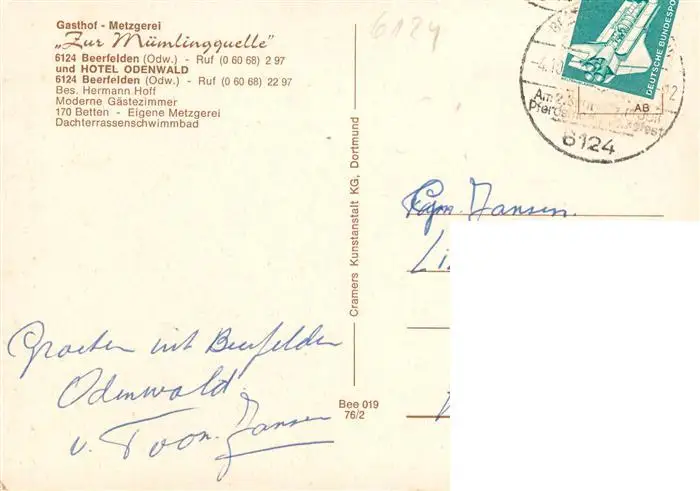 Gasthof - Metzgerei
„Zur Mümlingquelle"
6124 Beerfelden (Odw.) - Ruf (0 60 68) 2 97
und HOTEL ODENWALD
6124 Beerfelden (Odw.) - Ruf (0 60 68) 22 97
Bes. Hermann Hoff
Moderne Gästezimmer
170 Betten - Eigene Metzgerei
Dachterrassenschwimmbad
6124
DEUTSCHE BUNDESPO
AB
12
6124
Cramers Kunstanstalt KG, Dortmund
Fam. Jansen
Groeten uit Beerfelden
Odenwald.
v. Toon Jansen
Bee 019
76/2